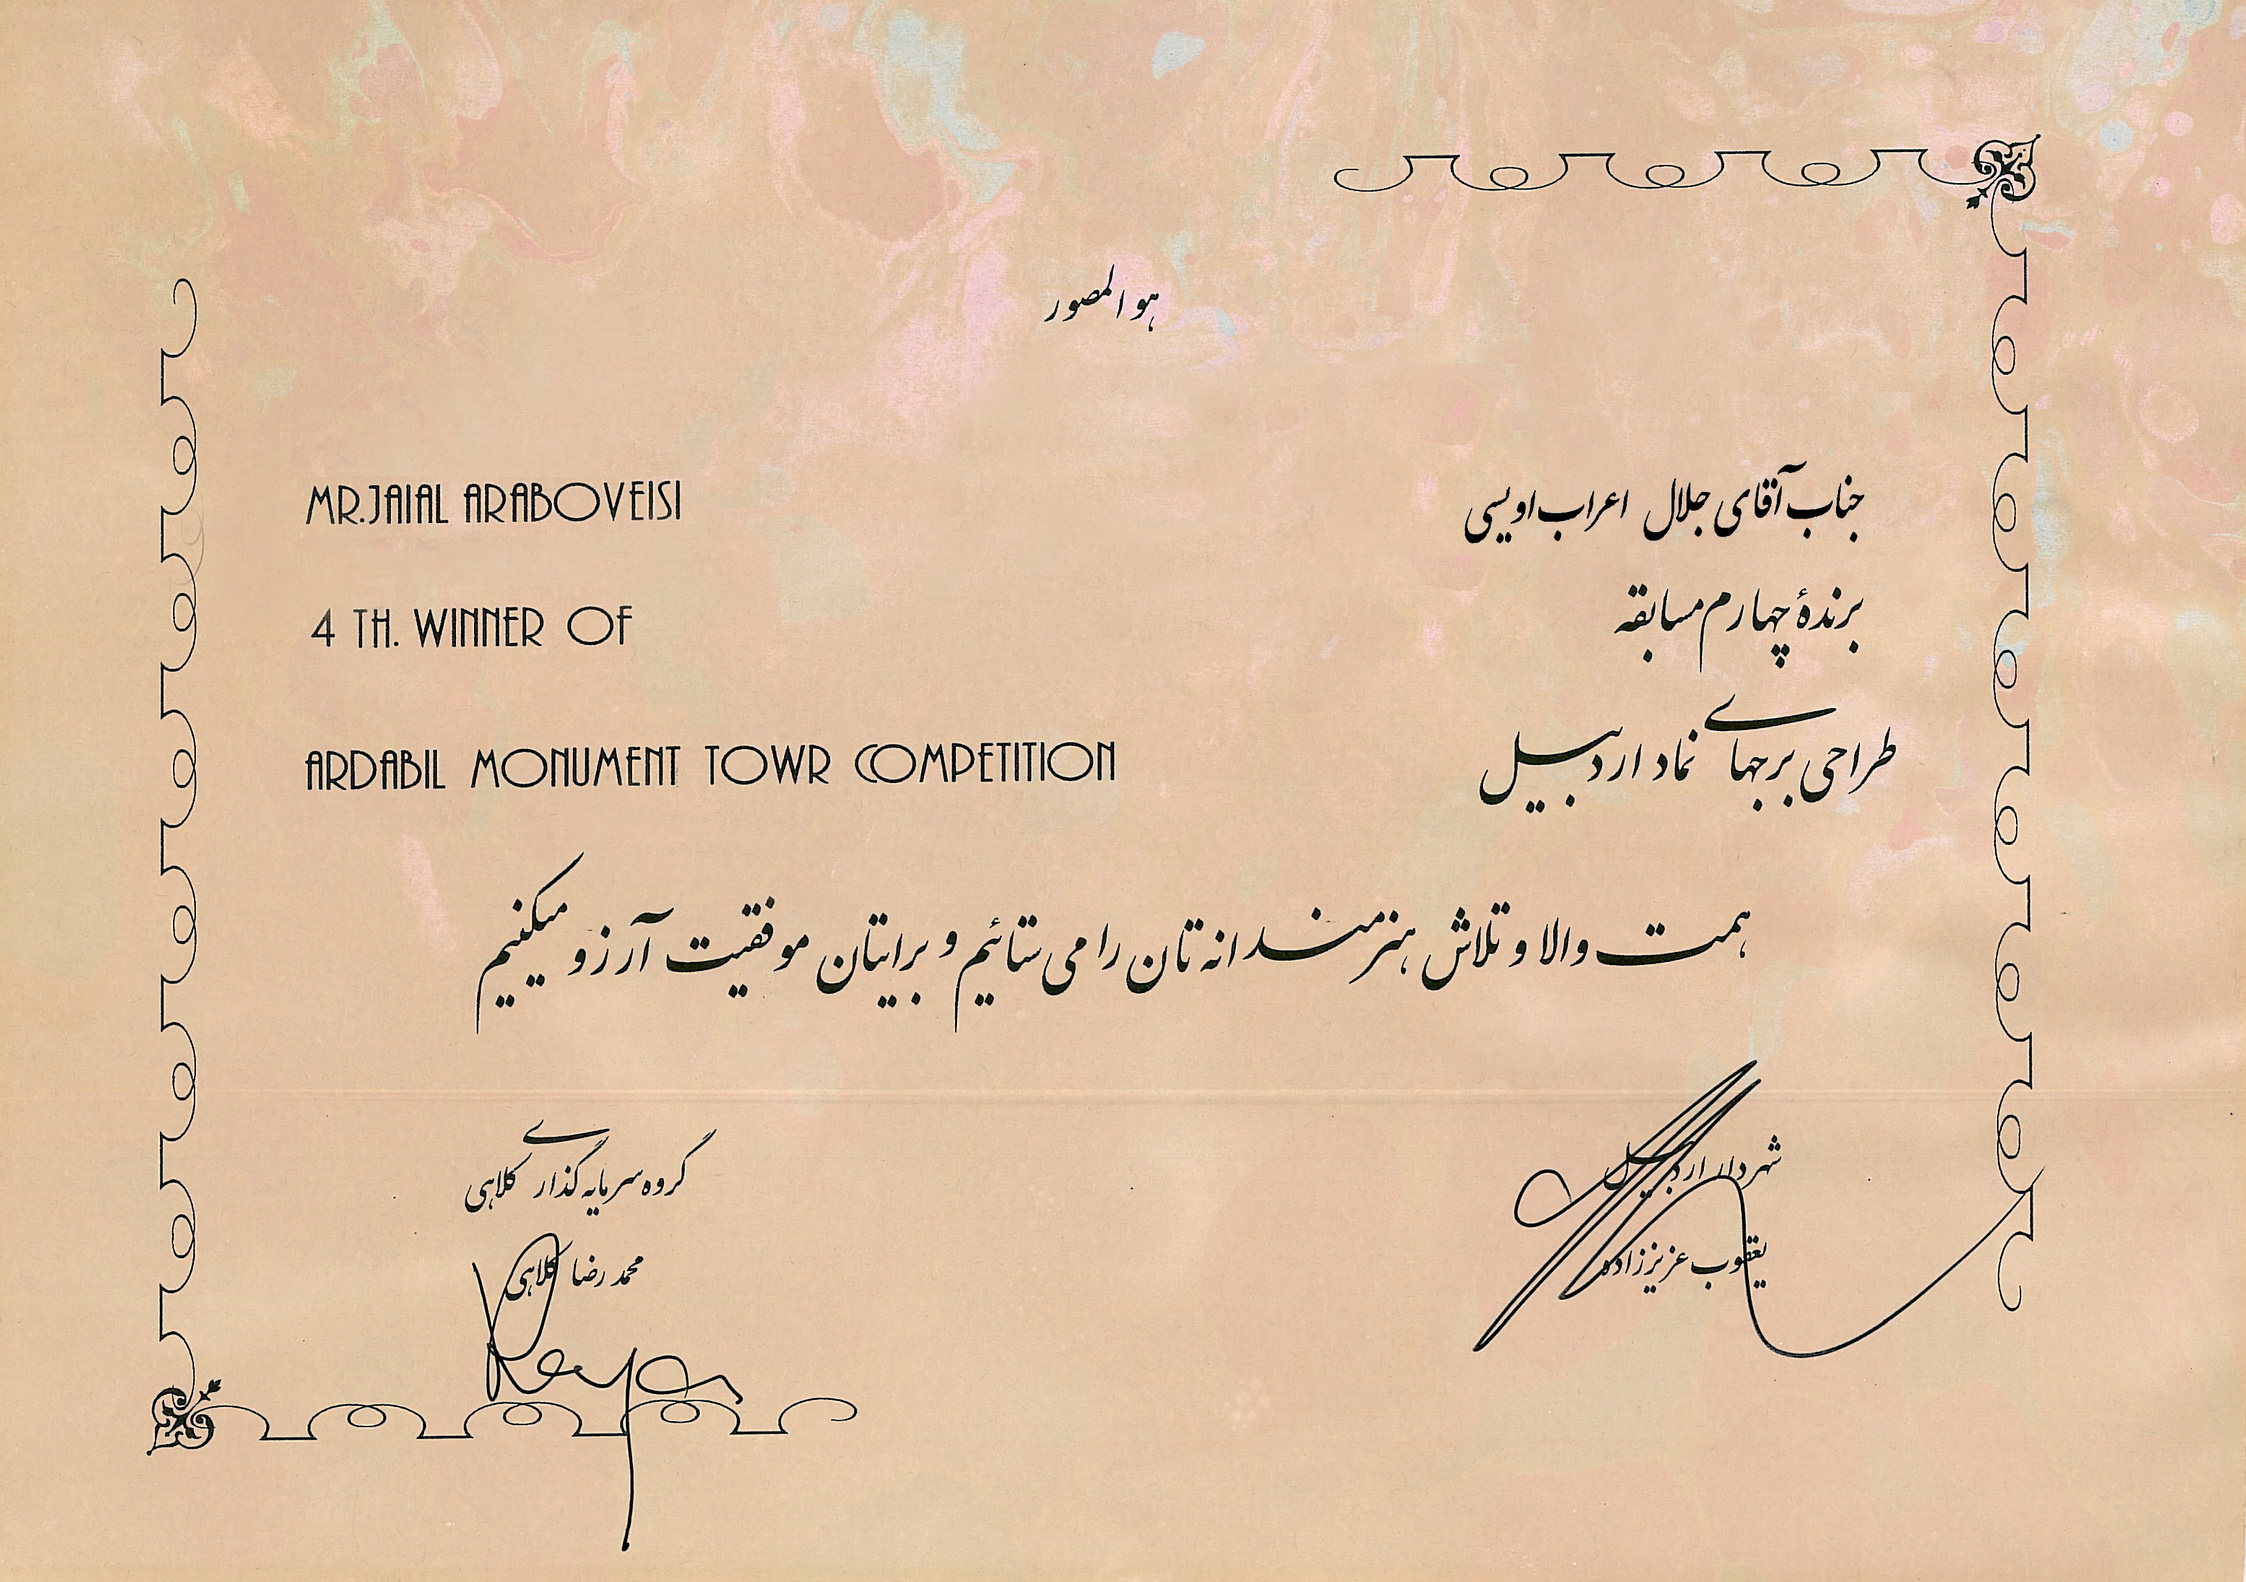 هوالمصور
جناب آقای جلال اعراب اویسی
برندهٔ چهارم مسابقه
طراحی برجهای نماد اردبیل
MR.JAIAL ARABOVEISI
4 TH. WINNER OF
ARDABIL MONUMENT TOWR COMPETITION
همت والا و تلاش هنرمندانه تان را می ستائیم و برایتان موفقیت آرزو میکنیم
شهردار اردبیل
یعقوب عزیززاده
گروه سرمایه گذاری کلاهی
محمد رضا کلاهی